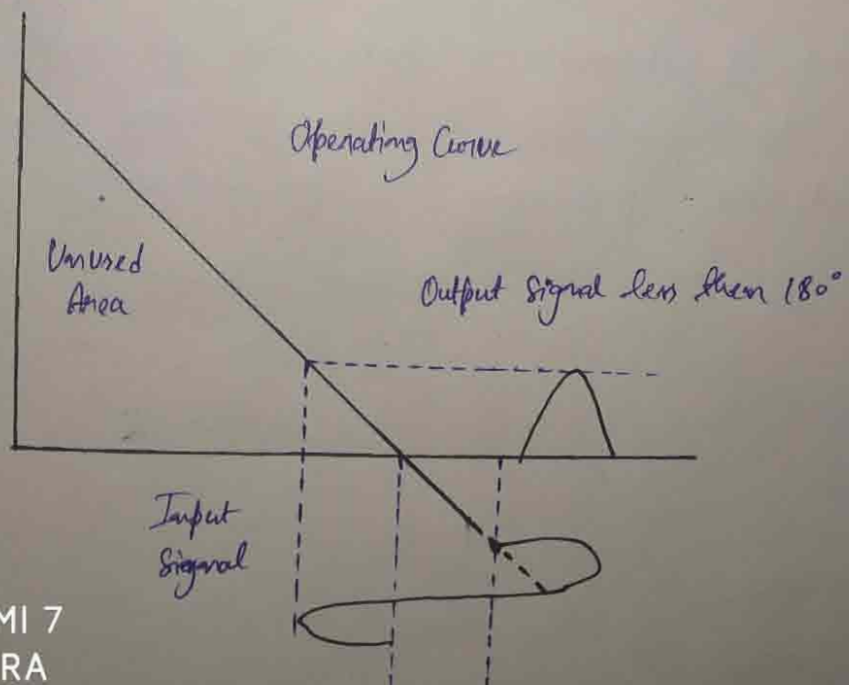 Operating Curve
Unused
Area
Output Signal less then 180°
Input
Siegnal
MI 7
RA